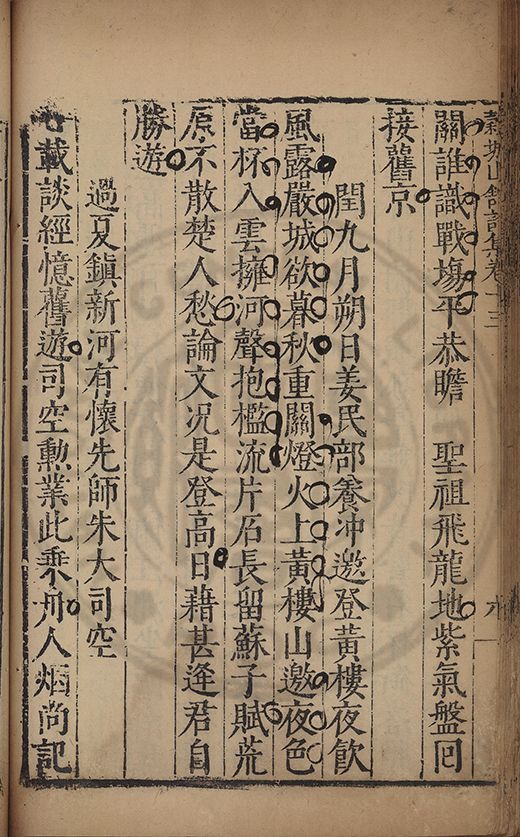 穀城山館詩集卷十三
關誰識戰塲平恭瞻 聖祖飛龍地紫氣盤回
接舊京
閏九月朔日姜民部養冲邀登黃樓夜飲
風露嚴城欲暮秋重關燈火上黃樓山邀夜色
當杯入雲擁河聲抱檻流片石長留蘇子賦荒
原不散楚人愁論文况是登高日藉甚逢君自
勝遊
過夏鎮新河有懷先師朱大司空
載談經憶舊遊司空勲業此乗舟人烟尚記